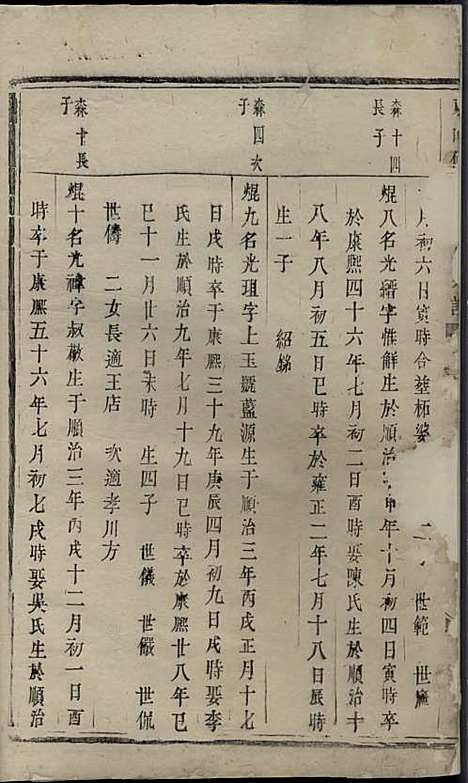 月初六日寅時合塟柘婆 二 世範 世
森十四長子
焜八名光縉字惟鮮生於順治 甲年十月初四日寅時卒
於康熙四十六年七月初二日酉時娶陳氏生於順治十
八年八月初五日巳時卒於雍正二年七月十八日辰時
生一子 紹銘
森四次子
焜九名光珇字上玉號藍源生于順治三年丙戌正月十七
日戌時卒于康熙三十九年庚辰四月初九日戌時娶李
氏生於順治九年七月十九日巳時卒於康熙廿八年己
巳十一月廿六日未時 生四子 世儀 世儼 世侃
世儔 二女長適王店 次適孝川方
森十長子
焜十名光禕字叔敬生于順治三年丙戌十二月初一日酉
時卒于康熙五十六年七月初七戌時娶吳氏生於順治